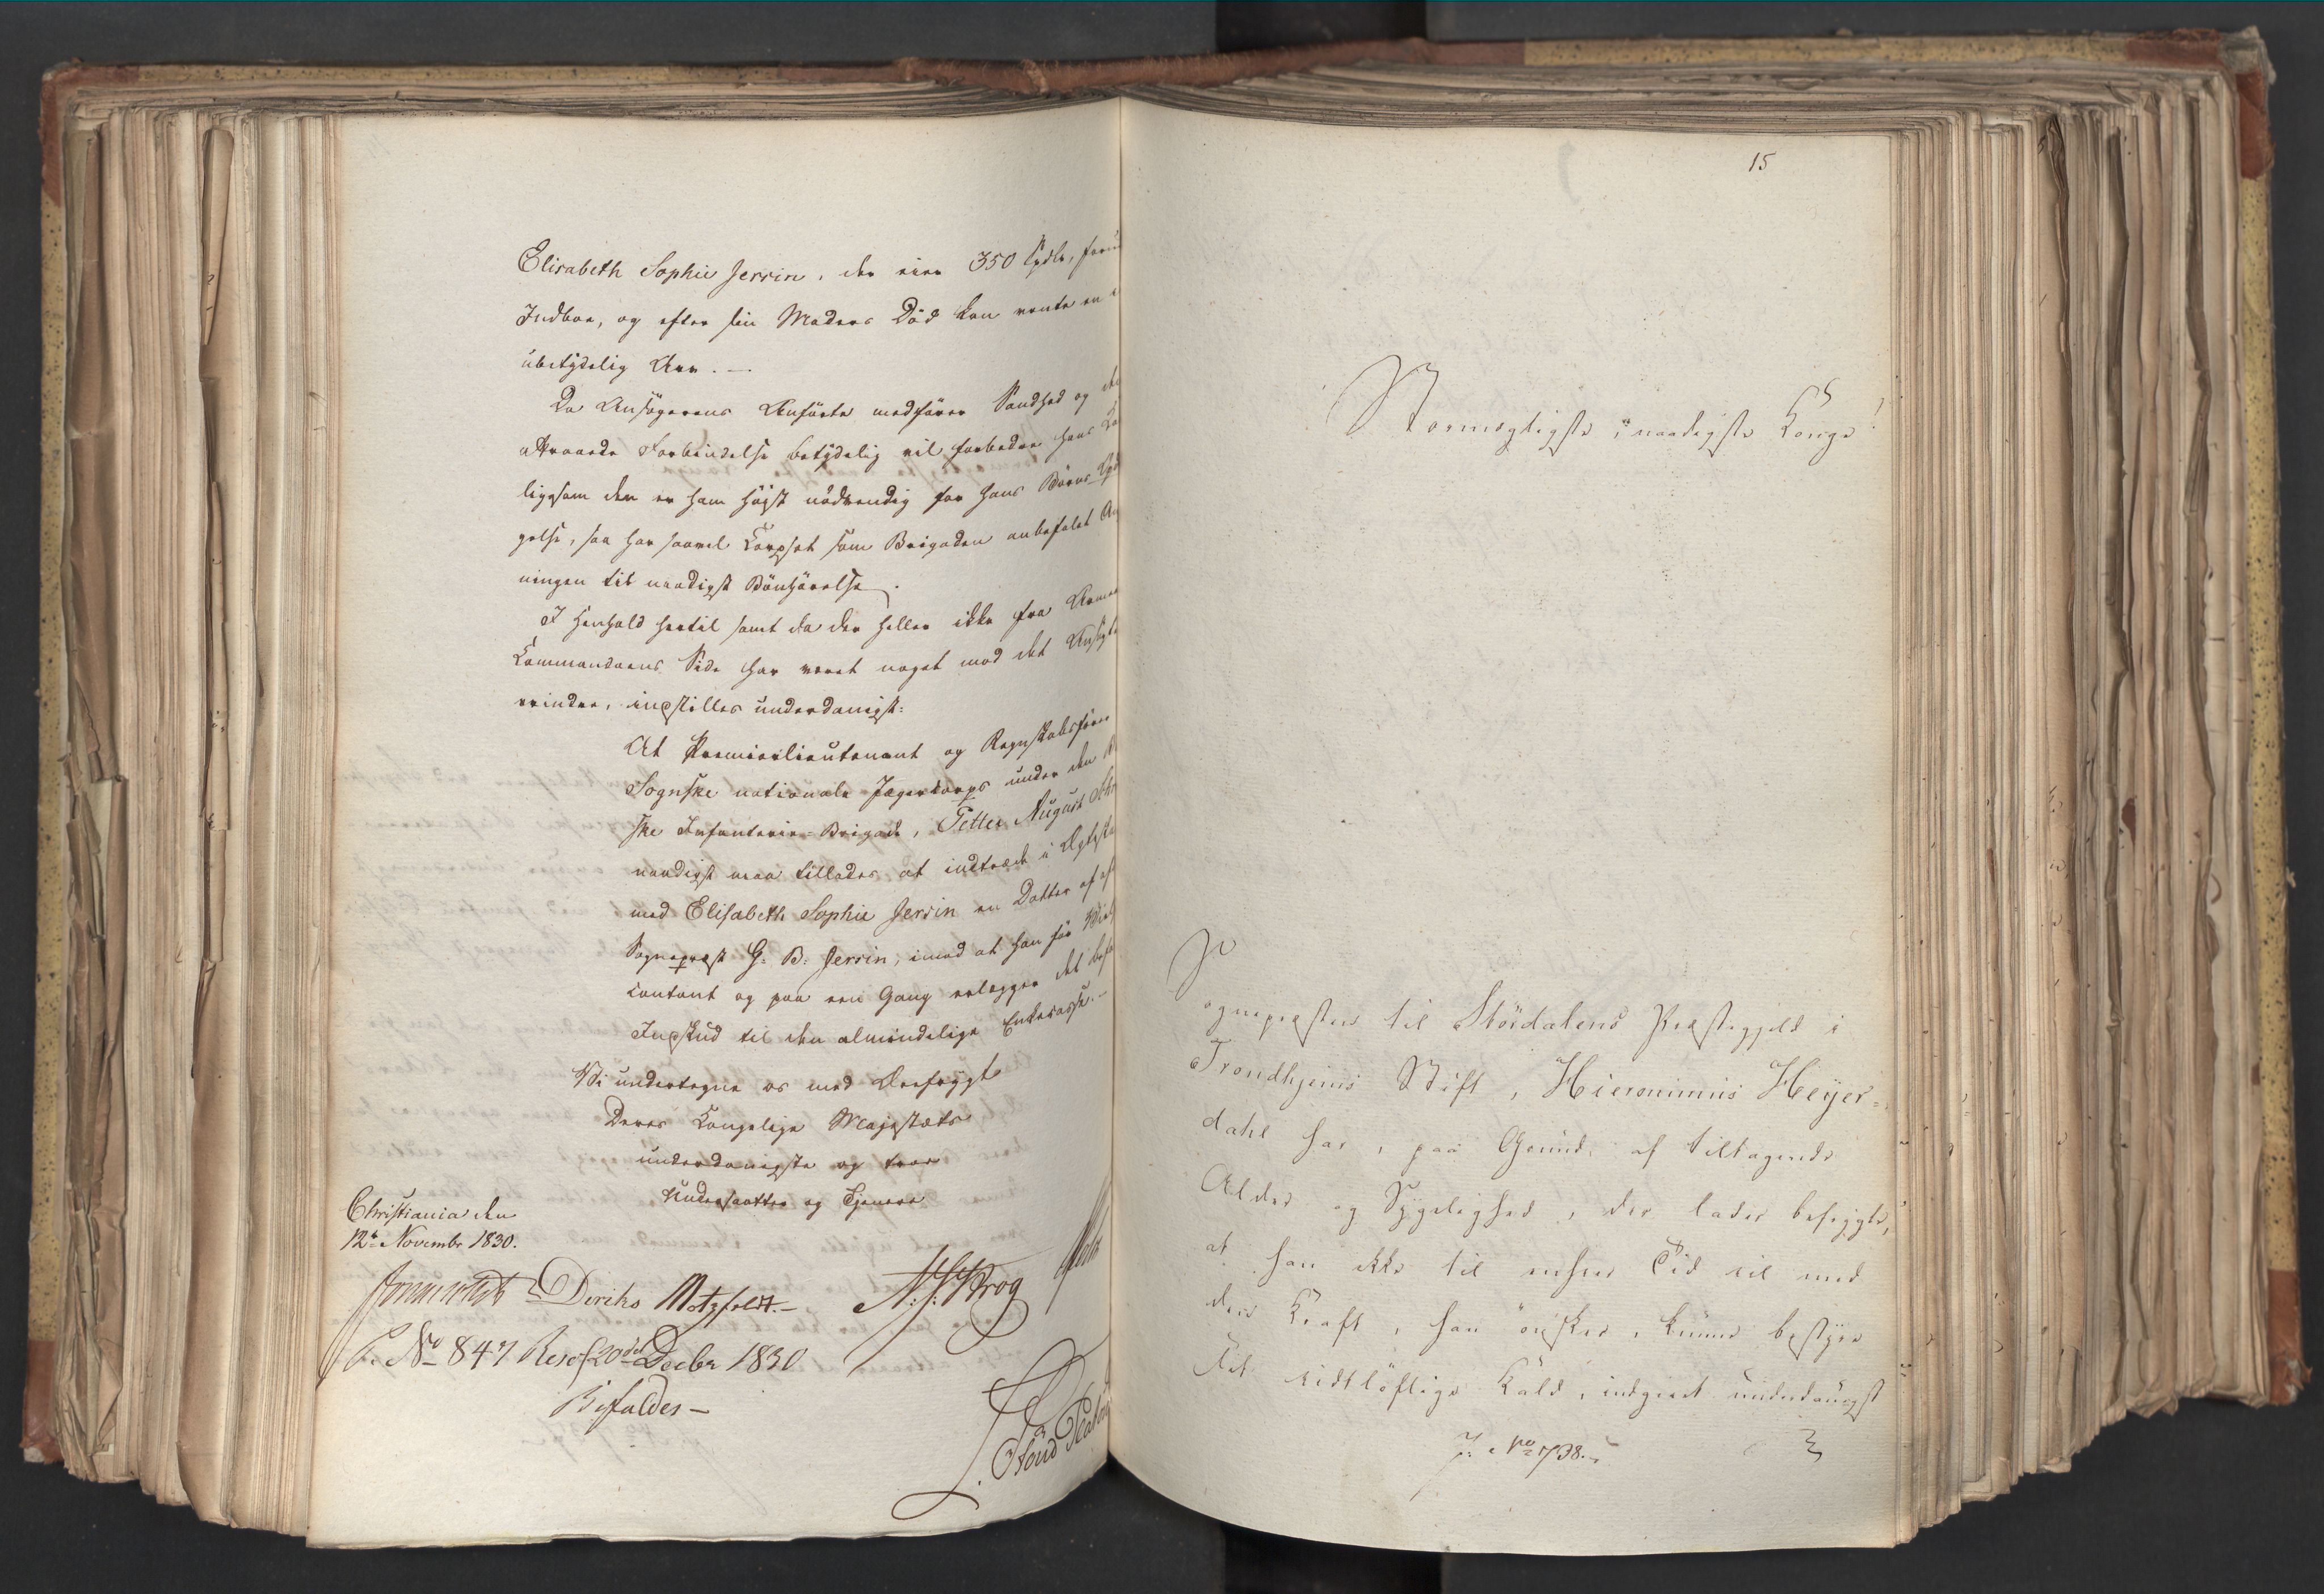 Elisabeth Sophie Jersin, der eier 350 Spdlr, foru
Indboe, og efter sin Moders Död kan vente en i
ubetydelig Arv. —
Da Ansögerens Anförte medförer Sandhed og de
attraaede Forbindelse betydelig vil forbedre hans Ka
ligesom den er ham höjst nödvendig for hans Börns Opd
gelse, saa har saavel Corpset som Brigaden anbefalet An
ningen til naadigst Bönhörelse.
I Henhold hertil samt da der heller ikke fra Armee
Commandoens Side har været noget mod det Ansögte
erindre, indstilles underdanigst:
At Premierlieutenant og Regnskabsförer
Sognske nationale Jægercorps under den B
ske Infanterie-Brigade, Petter August
naadigst maa tillades at indtræde i Ægteska
med Elisabeth Sophie Jersin en Datter af af
Sognepræst G: B: Jersin, imod at han för Viel
contant og paa een Gang erlægger det befa
Indskud til den almindelige Enkecasse. —
Vi undertegne os med Ærefrygt
Deres Kongelige Majestæts
underdanigste og troe
Undersaatter og Tjenere
Christiania den
12te Novembr 1830.
Sommerhielm Diriks Motzfeldt. — N: J: Krog Holst
J. No 847 Resol 20de Decbr 1830
Bifaldes —
15
Stormægtigste, naadigste Konge!
Sognepræsten til Stördalens Præstegjeld i
Trondhjems Stift, Hieronimus Heyer=
dahl har, paa Grund af tiltagende
Alder og Sygelighed, der lader befrygte,
at han ikke til enhver Tid vil med
den Kraft, han önsker, kunne bestyre
det vidtlöftige Kald, indgivet underdanigst
J: No 738. —